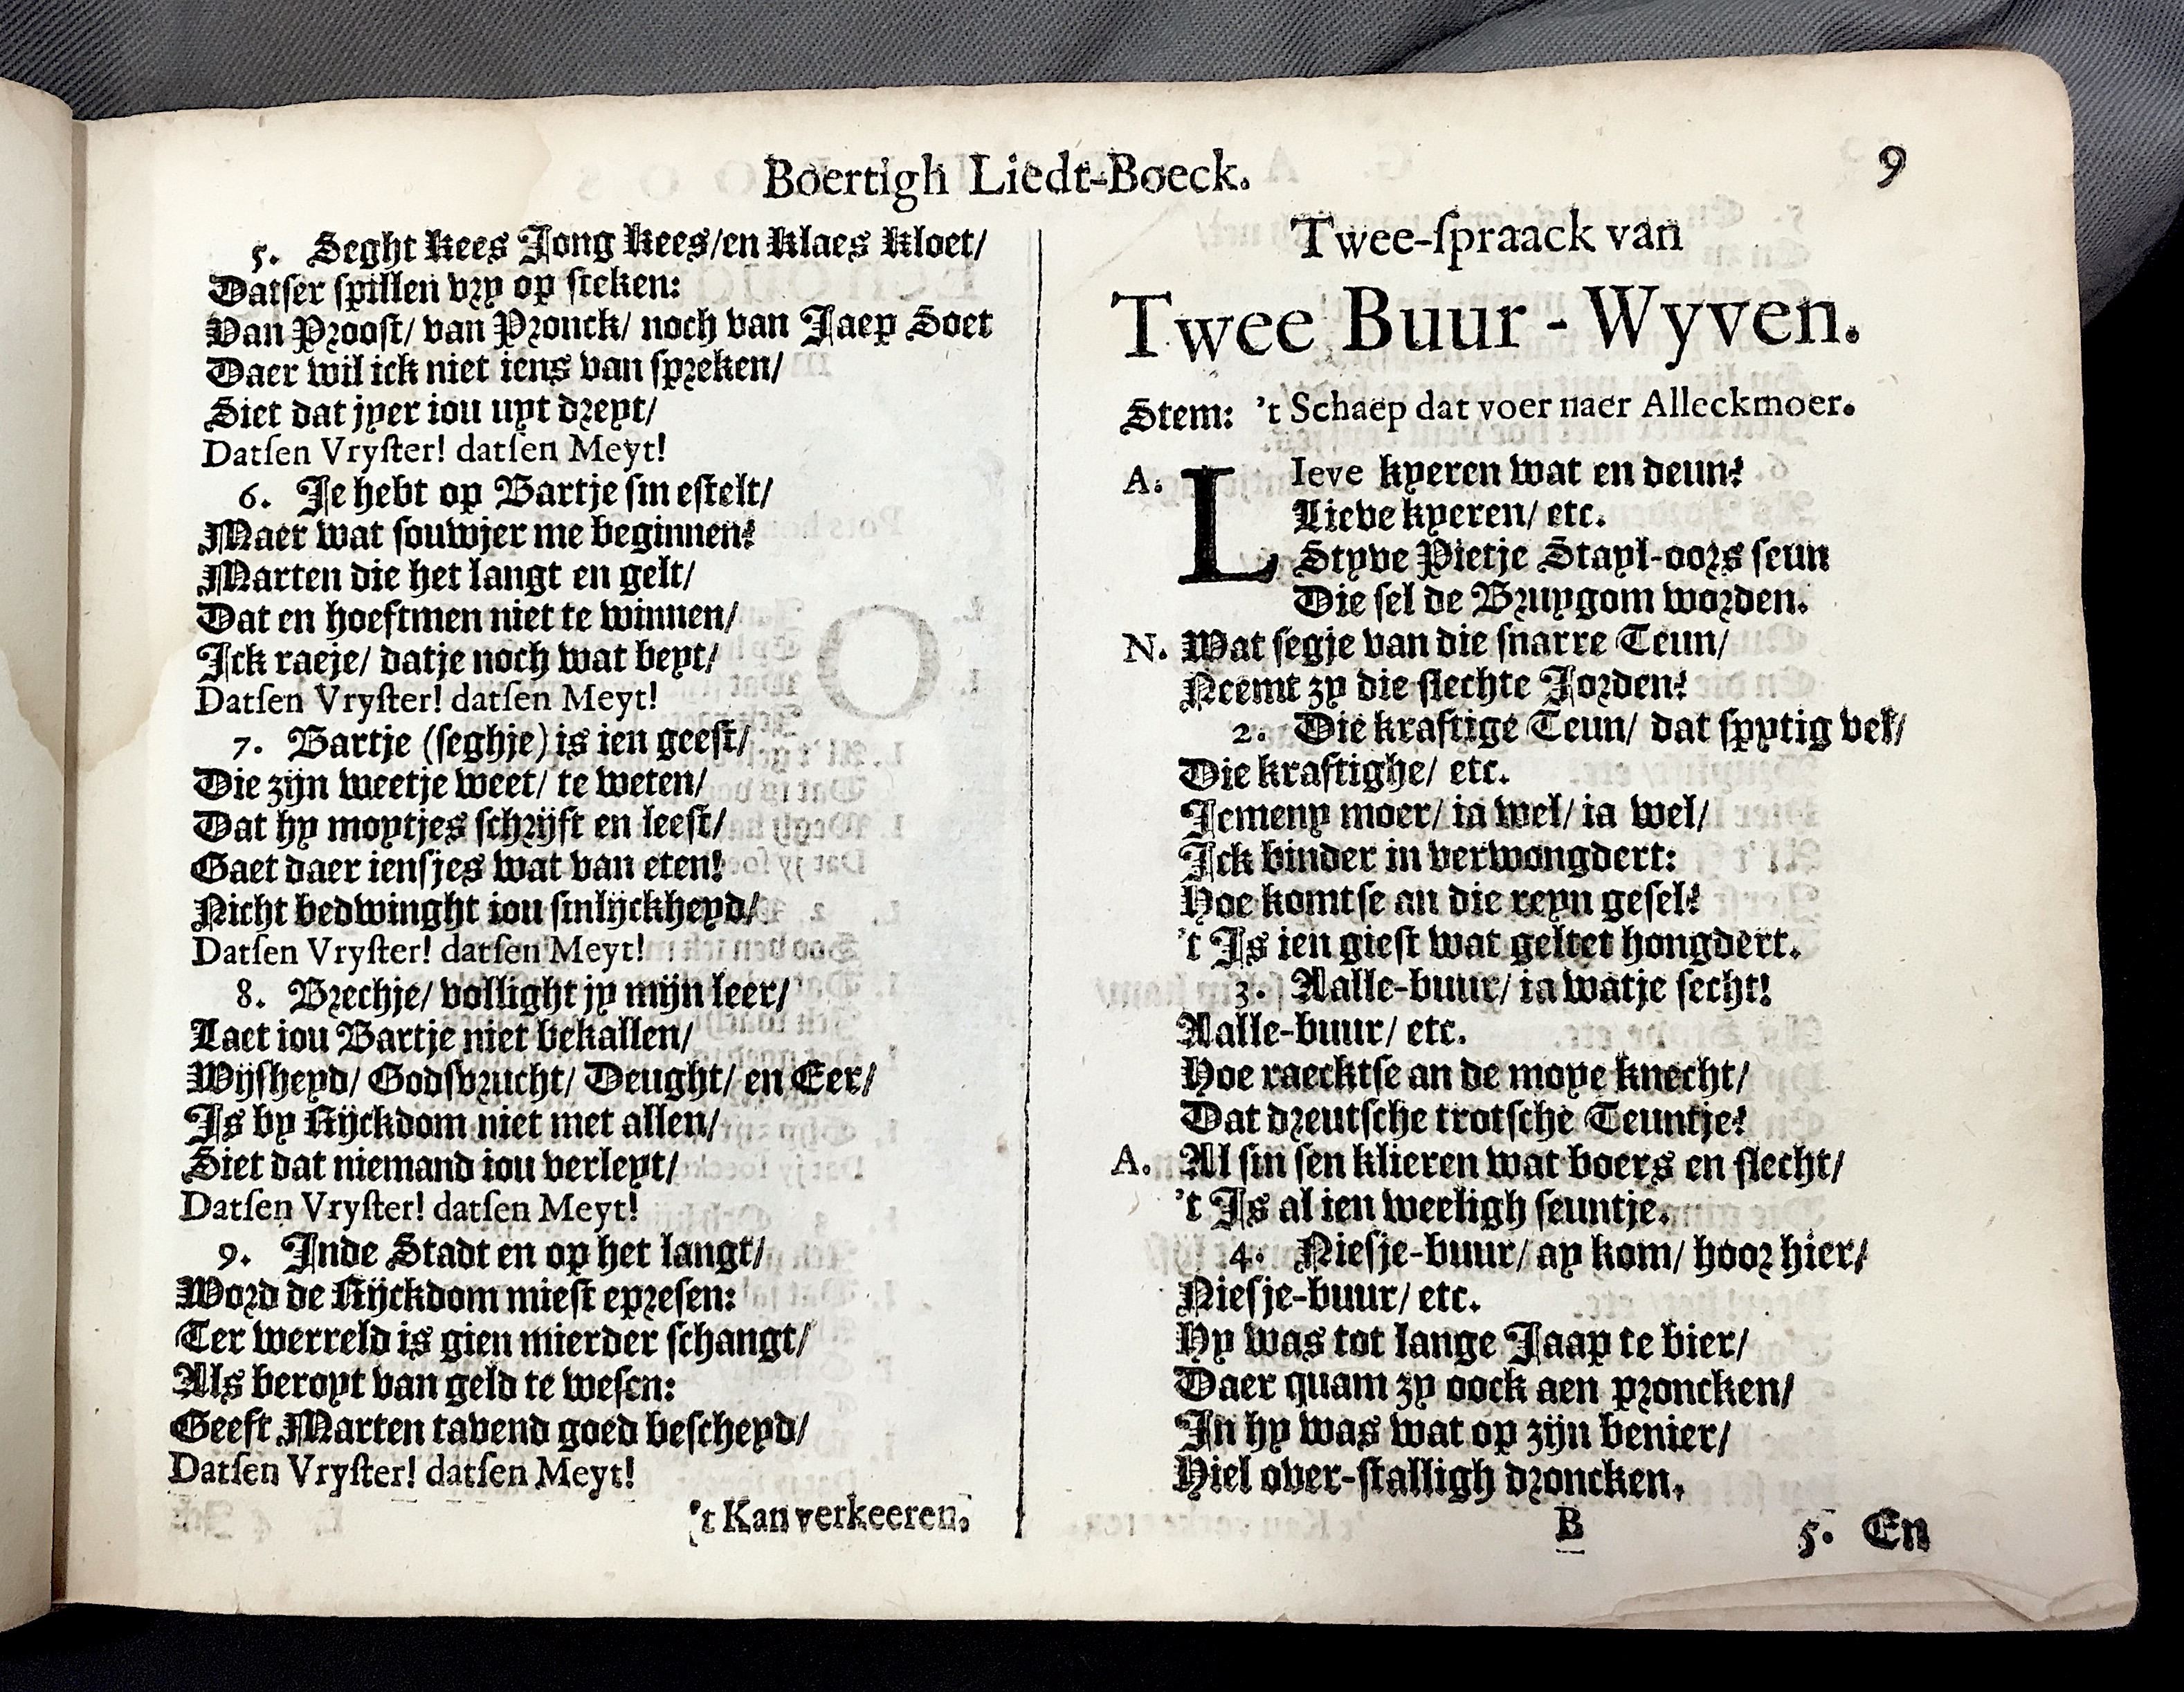 Boertigh Liedt-Boeck. 9
5. Seght Kees Jong Kees/en Klaes Kloet/
Datser spillen vry op steken:
Van Proost/ van Pronck/ noch van Jaep Soet
Daer wil ick niet iens van spreken/
Siet dat jyer iou uyt dreyt/
Datsen Vryster! datsen Meyt!
6. Je hebt op Bartje sin estelt/
Maer wat souwjer me beginnen?
Marten die het langt en gelt/
Dat en hoeftmen niet te winnen/
Ick raeje/ datje noch wat beyt/
Datsen Vryster! datsen Meyt!
7. Bartje (seghje) is ien geest/
Die zijn weetje weet/ te weten/
Dat hy moytjes schrijft en leest/
Gaet daer iensjes wat van eten!
Nicht bedwinght iou sinlijckheyd/
Datsen Vryster! datsen Meyt!
8. Brechje/ vollight jy mijn leer/
Laet iou Bartje niet bekallen/
Wijsheyd/ Godsvrucht/ Deught/ en Eer/
Is by Rijckdom niet met allen/
Siet dat niemand iou verleyt/
Datsen Vryster! datsen Meyt!
9. Inde Stadt en op het langt/
Word de Rijckdom miest epresen:
Ter werreld is gien mierder schangt/
Als beroyt van geld te wesen:
Geeft Marten tavend goed bescheyd/
Datsen Vryster! datsen Meyt!
't Kan verkeeren.
Twee-spraack van
Twee Buur-Wyven.
Stem: 't Schaep dat voer naer Alleckmoer.
A. LIeve kyeren wat en deun?
Lieve kyeren/ etc.
Styve Pietje Stayl-oors seun
Die sel de Bruygom worden.
N. Wat segje van die snarre Teun/
Neemt zy die slechte Jorden?
2. Die kraftige Teun/ dat spytig vel/
Die kraftighe/ etc.
Jemeny moer/ ia wel/ ia wel/
Ick binder in verwongdert:
Hoe komtse an die reyn gesel?
't Is ien giest wat geltet hongdert.
3. Aalle-buur/ ia watje secht!
Aalle-buur/ etc.
Hoe raecktse an de moye knecht/
Dat dreutsche trotsche Teuntje?
A. Al sin sen klieren wat boers en slecht/
't Is al ien weeligh seuntje.
4. Niesje-buur/ ay kom/ hoor hier/
Niesje-buur/ etc.
Hy was tot lange Jaap te bier/
Daer quam zy oock aen proncken/
In hy was wat op zijn benier/
Hiel over-stalligh droncken.
B 5. En